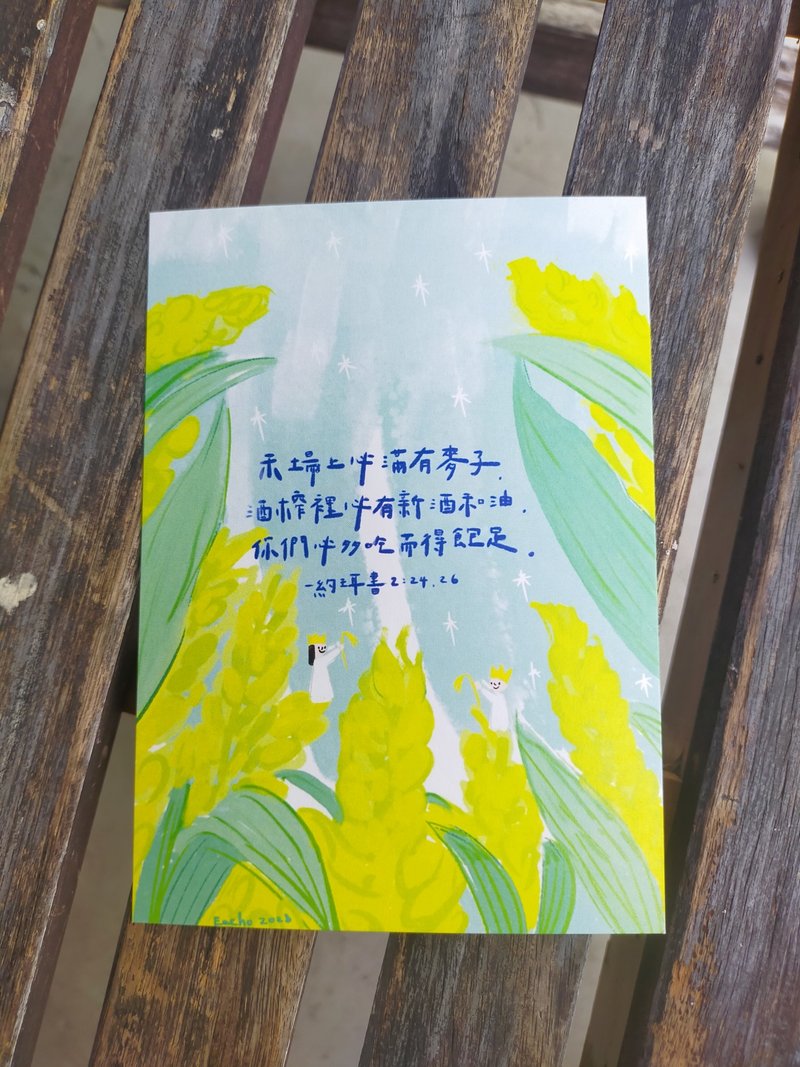 禾場上必滿有麥子，
酒榨裡必有新酒和油．
你們必多吃而得飽足．
一約珥書2:24.26
Eacho 2023